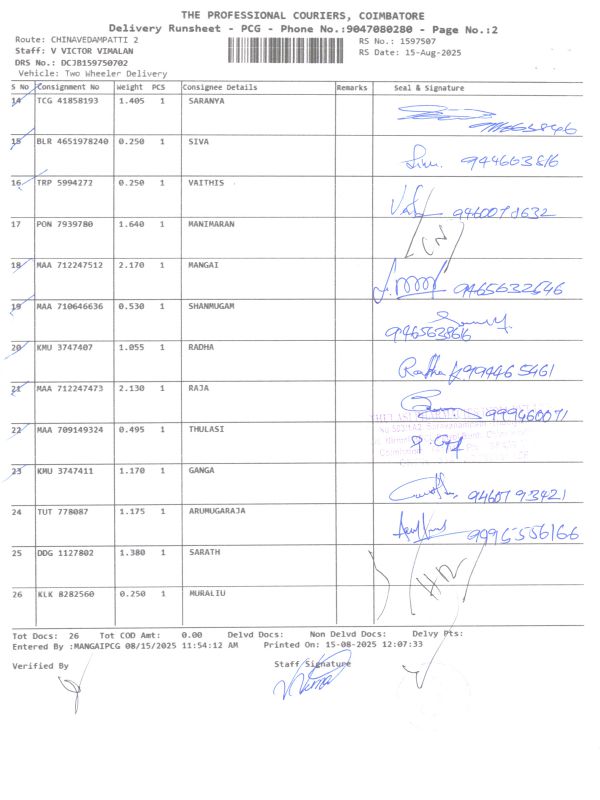 THE PROFESSIONAL COURIERS, COIMBATORE
Delivery Runsheet - PCG - Phone No.:9047080280 - Page No.:2
Route: CHINAVEDAMPATTI 2 RS No.: 1597507
Staff: V VICTOR VIMALAN RS Date: 15-Aug-2025
DRS No.: DCJB159750702
Vehicle: Two Wheeler Delivery
S No Consignment No Weight PCS Consignee Details Remarks Seal & Signature
14 TCG 41858193 1.405 1 SARANYA
15 BLR 4651978240 0.250 1 SIVA 944663816
16 TRP 5994272 0.250 1 VAITHIS
17 PON 7939780 1.640 1 MANIMARAN
18 MAA 712247512 2.170 1 MANGAI 9465632646
19 MAA 710646636 0.530 1 SHANMUGAM
20 KMU 3747407 1.055 1 RADHA Radha
21 MAA 712247473 2.130 1 RAJA 999460071
22 MAA 709149324 0.495 1 THULASI
23 KMU 3747411 1.170 1 GANGA 9460793421
24 TUT 778087 1.175 1 ARUMUGARAJA 9996556166
25 DDG 1127802 1.380 1 SARATH
26 KLK 8282560 0.250 1 MURALIU
Tot Docs: 26 Tot COD Amt: 0.00 Delvd Docs: Non Delvd Docs: Delvy Pts:
Entered By :MANGAIPCG 08/15/2025 11:54:12 AM Printed On: 15-08-2025 12:07:33
Verified By Staff Signature